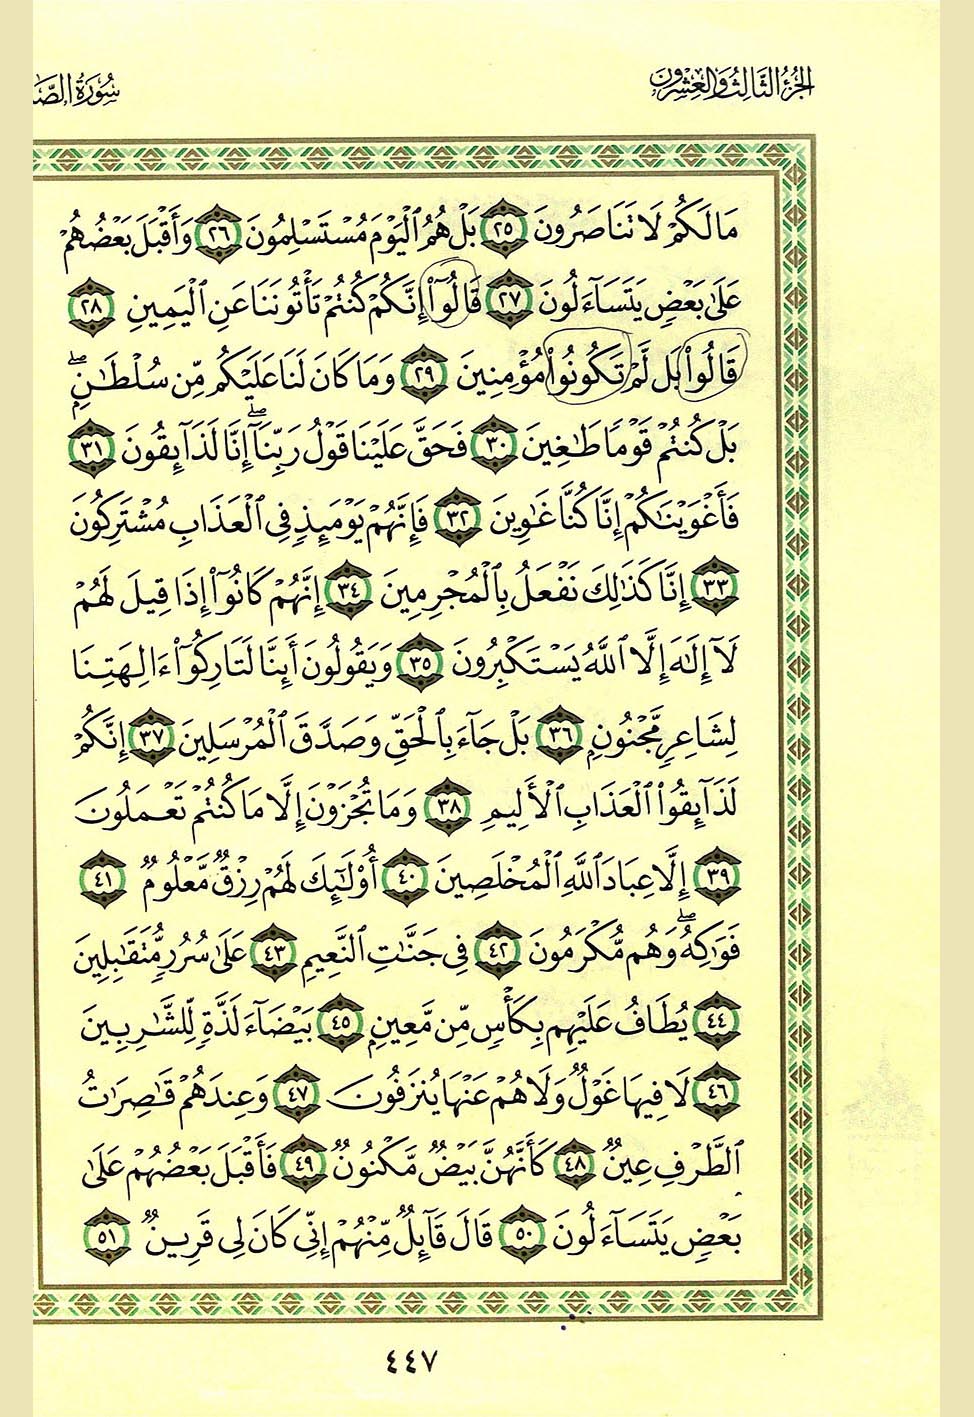 الجُزْءُ الثَّالِثُ وَالعِشْرُونَ
سُورَةُ الصَّا
مَا لَكُمْ لَا تَنَاصَرُونَ ٢٥ بَلْ هُمُ ٱلْيَوْمَ مُسْتَسْلِمُونَ ٢٦ وَأَقْبَلَ بَعْضُهُمْ
عَلَىٰ بَعْضٍ يَتَسَآءَلُونَ ٢٧ قَالُوٓا۟ إِنَّكُمْ كُنتُمْ تَأْتُونَنَا عَنِ ٱلْيَمِينِ ٢٨
قَالُوا۟ بَل لَّمْ تَكُونُوا۟ مُؤْمِنِينَ ٢٩ وَمَا كَانَ لَنَا عَلَيْكُم مِّن سُلْطَـٰنٍۭ ۖ
بَلْ كُنتُمْ قَوْمًا طَـٰغِينَ ٣٠ فَحَقَّ عَلَيْنَا قَوْلُ رَبِّنَآ ۖ إِنَّا لَذَآئِقُونَ ٣١
فَأَغْوَيْنَـٰكُمْ إِنَّا كُنَّا غَـٰوِينَ ٣٢ فَإِنَّهُمْ يَوْمَئِذٍ فِى ٱلْعَذَابِ مُشْتَرِكُونَ
٣٣ إِنَّا كَذَٰلِكَ نَفْعَلُ بِٱلْمُجْرِمِينَ ٣٤ إِنَّهُمْ كَانُوٓا۟ إِذَا قِيلَ لَهُمْ
لَآ إِلَـٰهَ إِلَّا ٱللَّهُ يَسْتَكْبِرُونَ ٣٥ وَيَقُولُونَ أَئِنَّا لَتَارِكُوٓا۟ ءَالِهَتِنَا
لِشَاعِرٍ مَّجْنُونٍۭ ٣٦ بَلْ جَآءَ بِٱلْحَقِّ وَصَدَّقَ ٱلْمُرْسَلِينَ ٣٧ إِنَّكُمْ
لَذَآئِقُوا۟ ٱلْعَذَابِ ٱلْأَلِيمِ ٣٨ وَمَا تُجْزَوْنَ إِلَّا مَا كُنتُمْ تَعْمَلُونَ
٣٩ إِلَّا عِبَادَ ٱللَّهِ ٱلْمُخْلَصِينَ ٤٠ أُو۟لَـٰٓئِكَ لَهُمْ رِزْقٌ مَّعْلُومٌ ٤١
فَوَٰكِهُ ۖ وَهُم مُّكْرَمُونَ ٤٢ فِى جَنَّـٰتِ ٱلنَّعِيمِ ٤٣ عَلَىٰ سُرُرٍ مُّتَقَـٰبِلِينَ
٤٤ يُطَافُ عَلَيْهِم بِكَأْسٍ مِّن مَّعِينٍۭ ٤٥ بَيْضَآءَ لَذَّةٍ لِّلشَّـٰرِبِينَ
٤٦ لَا فِيهَا غَوْلٌ وَلَا هُمْ عَنْهَا يُنزَفُونَ ٤٧ وَعِندَهُمْ قَـٰصِرَٰتُ
ٱلطَّرْفِ عِينٌ ٤٨ كَأَنَّهُنَّ بَيْضٌ مَّكْنُونٌ ٤٩ فَأَقْبَلَ بَعْضُهُمْ عَلَىٰ
بَعْضٍ يَتَسَآءَلُونَ ٥٠ قَالَ قَآئِلٌ مِّنْهُمْ إِنِّى كَانَ لِى قَرِينٌ ٥١
٤٤٧